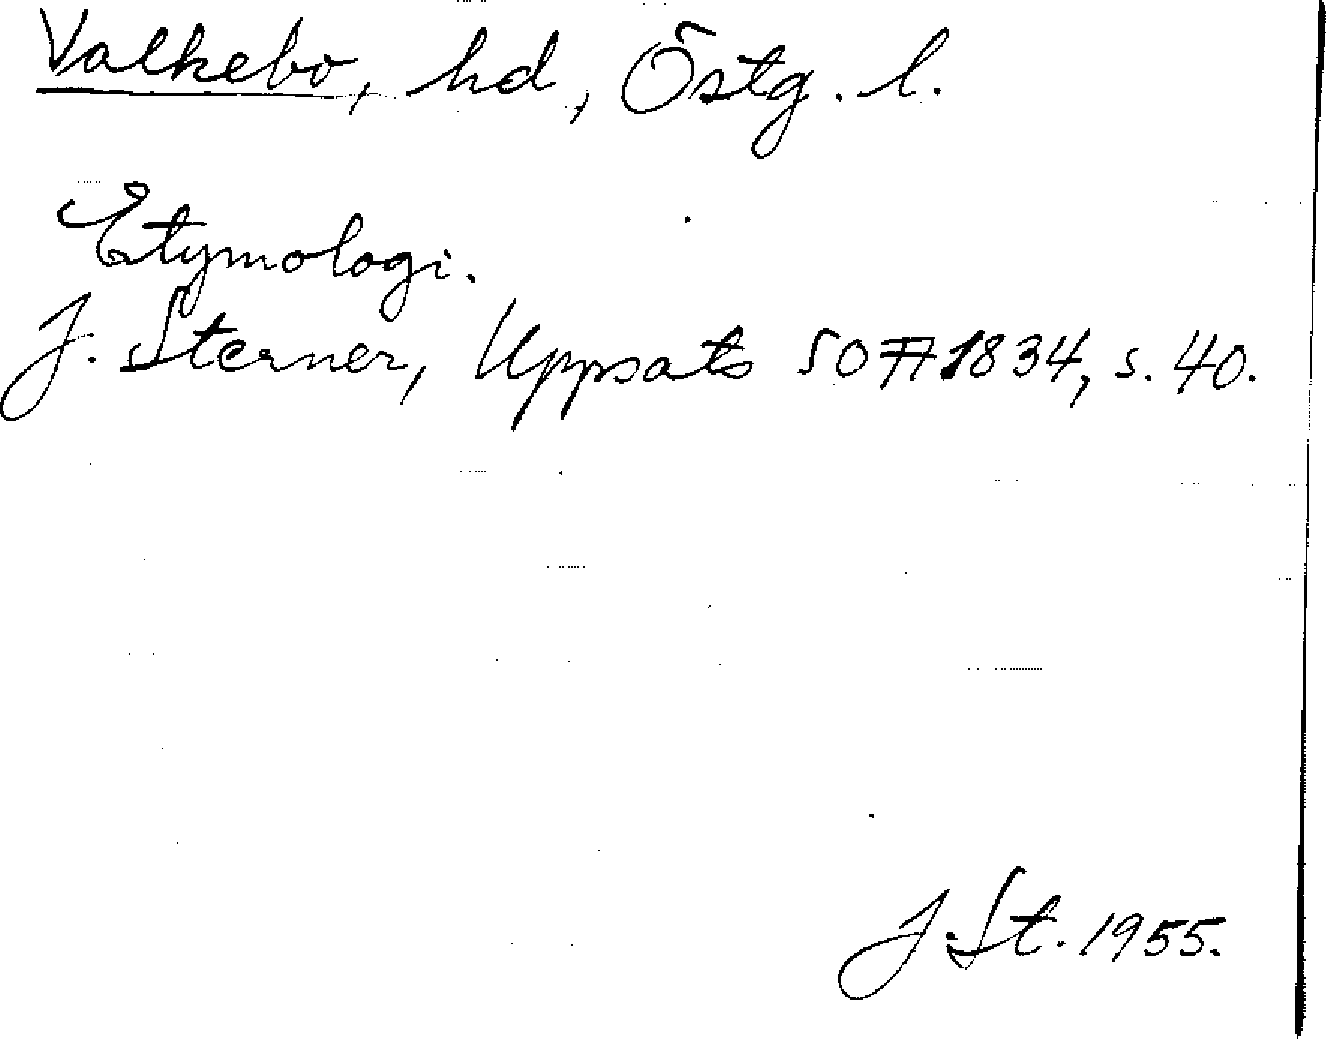 Valkebo, hd, Östg. l.
Etymologi.
J. Sterner, Uppsats SOFA 1834, s. 40.
J. St. 1955.